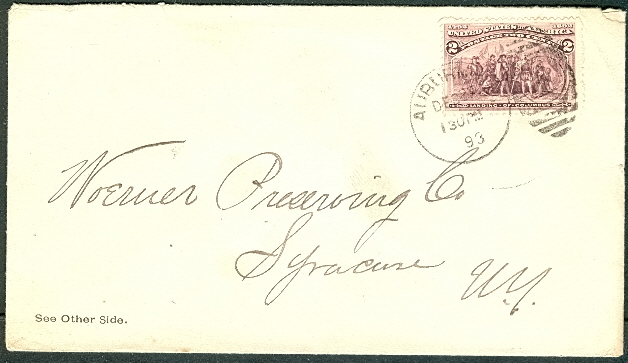 1492 1892
UNITED STATES OF AMERICA
2 2
LANDING OF COLUMBUS
AUBURN
DE
130PM
93
Woerner Preserving Co
Syracuse
N.Y.
See Other Side.